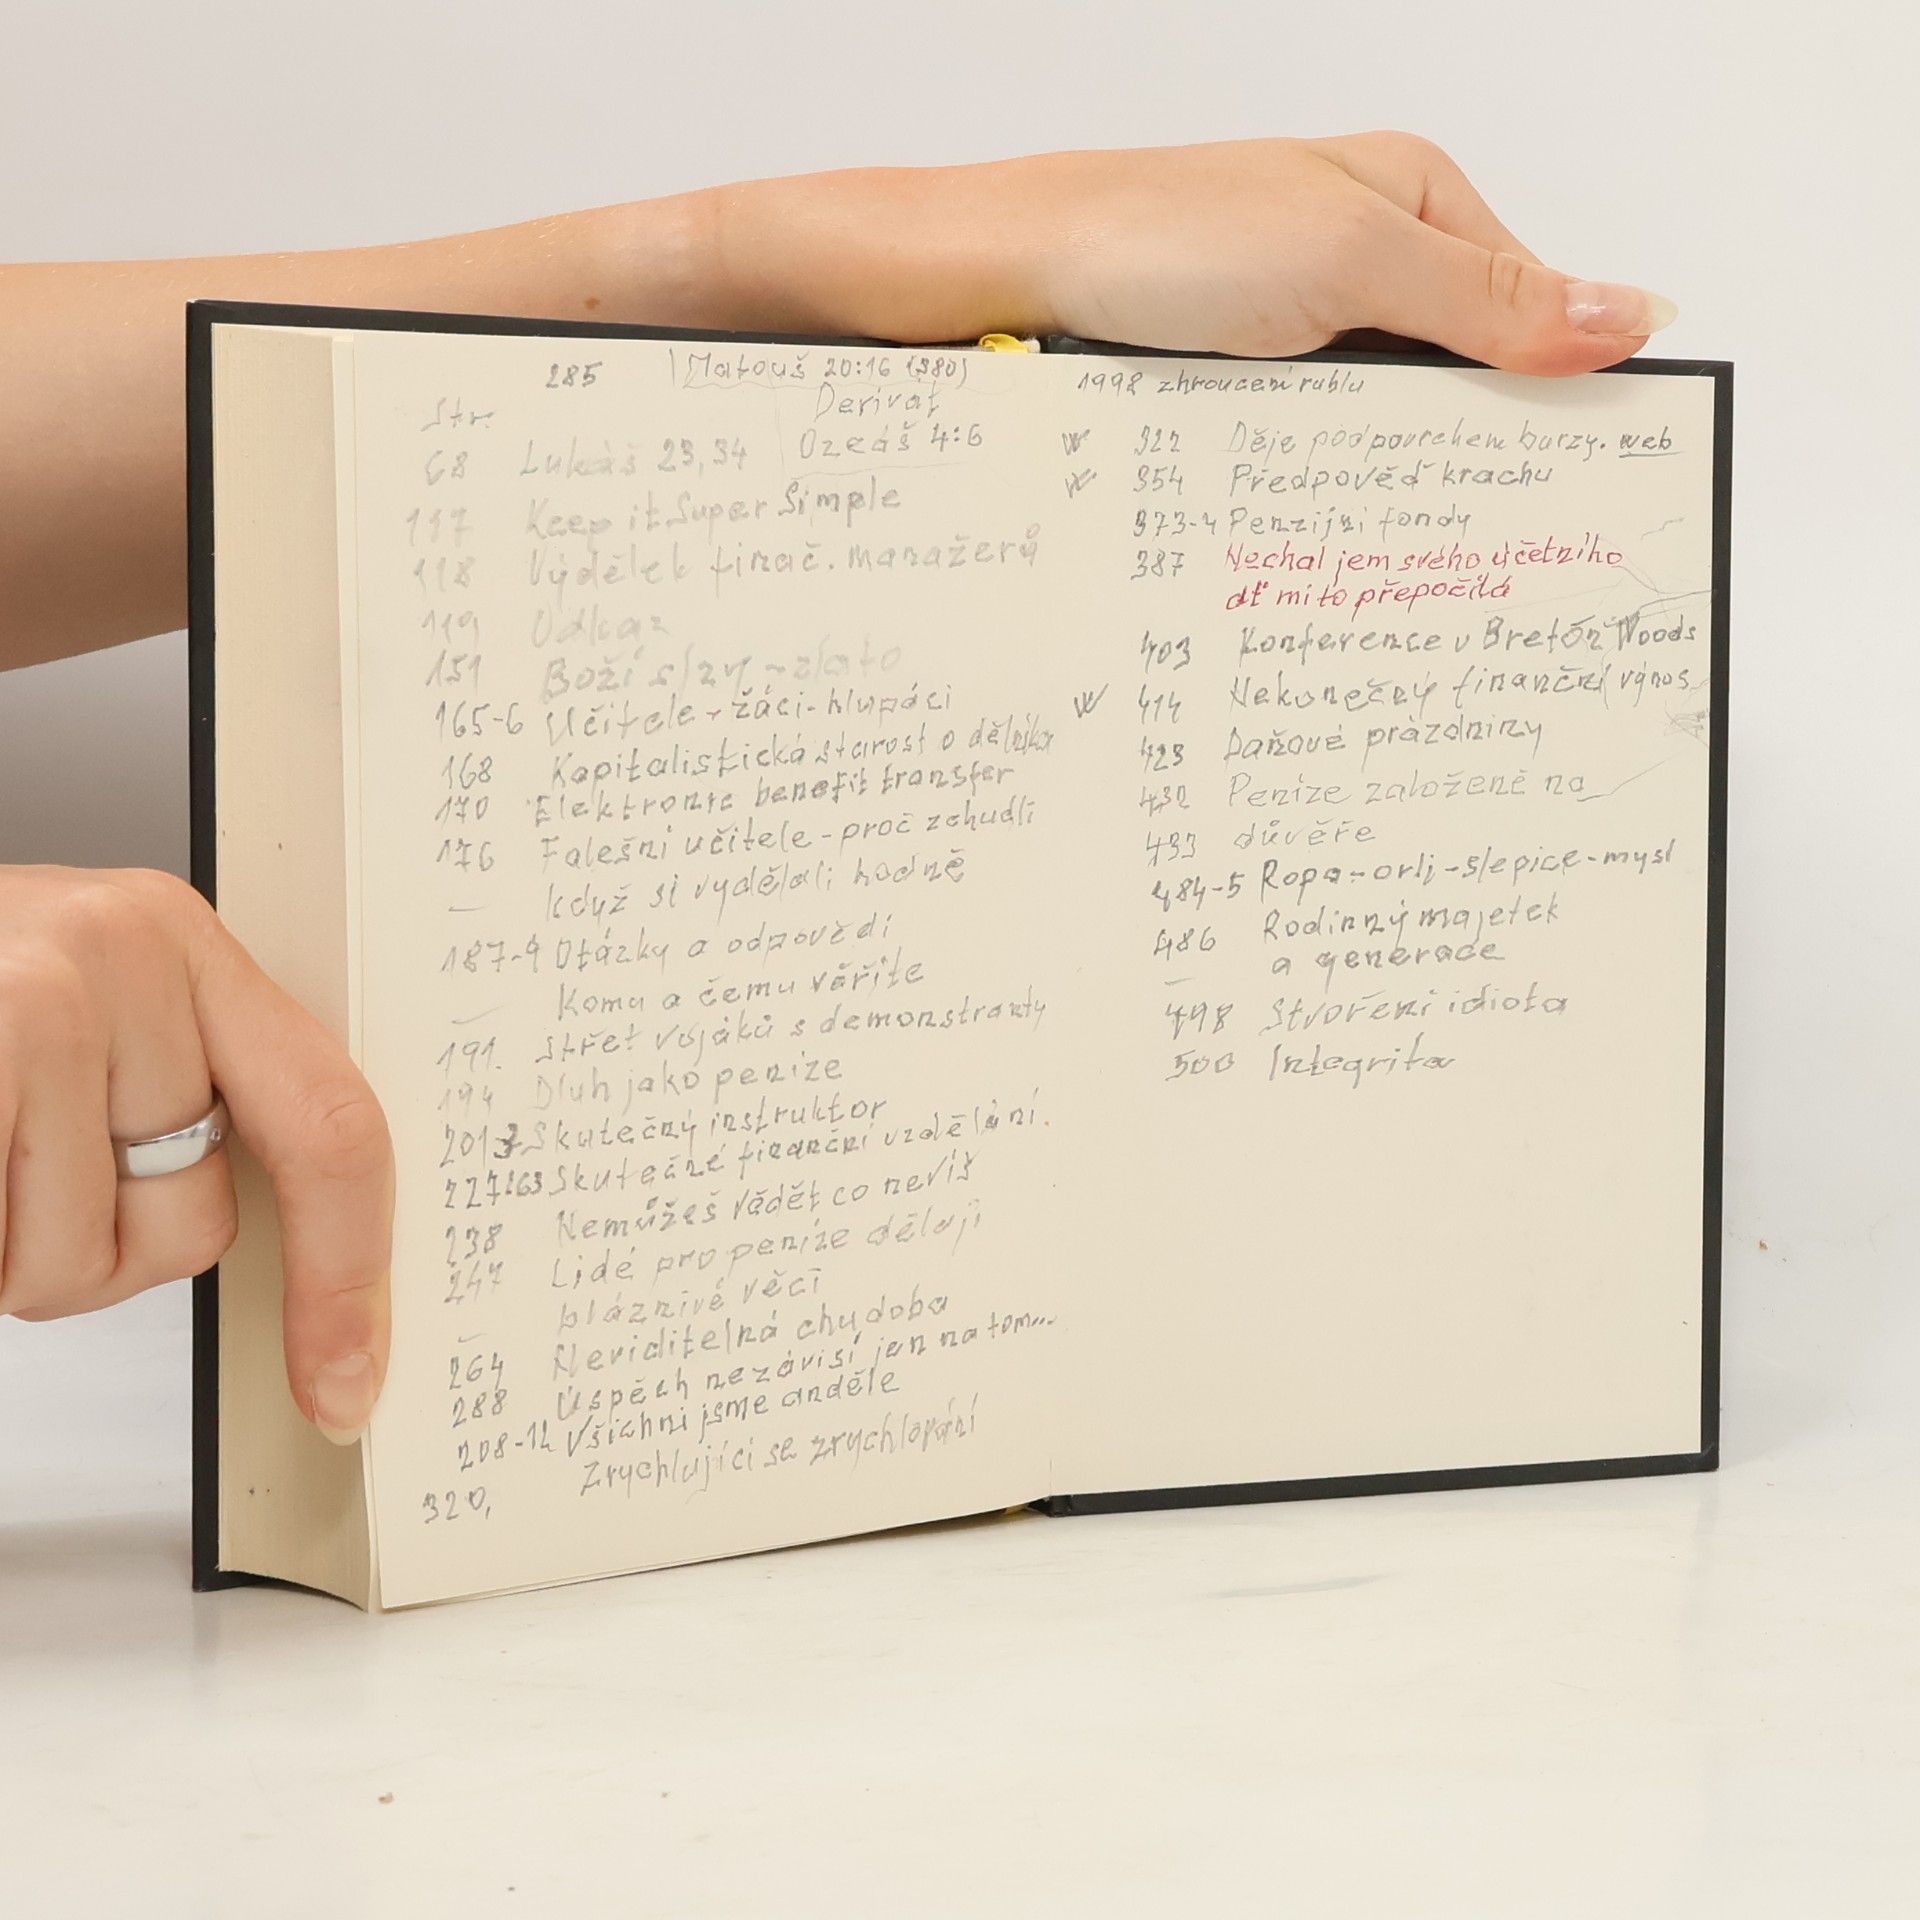 285 Matouš 20:16 (380)
Derivát
Str.
68 Lukáš 23,34 Ozeáš 4:6
117 Keep it Super Simple
118 Výdělek finač. manažerů
119 Odkaz
151 Boží slzy - zlato
165-6 Učitele - žáci - hlupáci
168 Kapitalistická starost o dělníka
170 Elektronic benefit transfer
176 Falešní učitele - proč zchudli
— když si vydělali hodně
187-9 Otázky a odpovědi
— Komu a čemu věříte
191. Střet vojáků s demonstranty
194 Dluh jako peníze
201 Skutečný instruktor
227 163 Skutečné finanční vzdělání.
238 Nemůžeš vědět co nevíš
247 Lidé pro peníze dělají
bláznivé věci
264 Neviditelná chudoba
288 Úspěch nezávisí jen na tom...
208-12 Všichni jsme anděle
Zrychlující se zrychlování
320,
1998 zhroucení rublu
W 322 Děje pod povrchem burzy. web
W 354 Předpověď krachu
373-4 Penzijní fondy
387 Nechal jem svého účetního
ať mi to přepočítá
403 Konference v Bretón Woods
W 414 Nekonečný finanční výnos
423 Daňové prázdniny
432 Peníze založené na
433 důvěře
484-5 Ropa - orli - slepice - mysl
486 Rodinný majetek
a generace
498 Stvoření idiota
500 Integrita